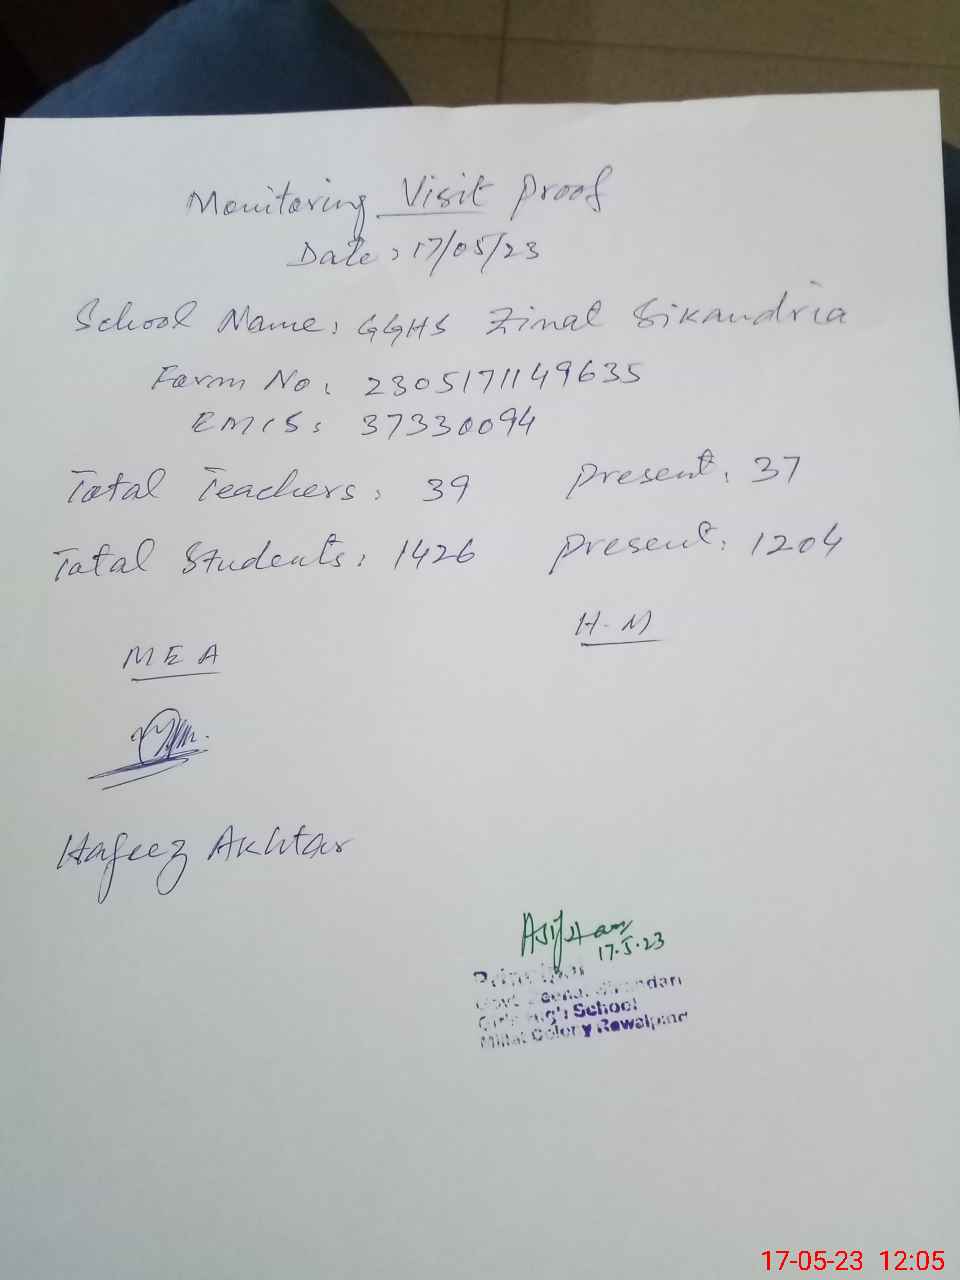 Monitoring Visit Proof
Date: 17/05/23
School Name: GGHS Zinat Sikandria
Form No: 2305171149635
EMIS: 37330094
Total Teachers: 39 Present: 37
Total Students: 1426 Present: 1204
H.M
MEA
Hafeez Akhtar
17.5.23
Principal
Govt.
Girls High School
Millat Colony Rawalpindi
17-05-23 12:05